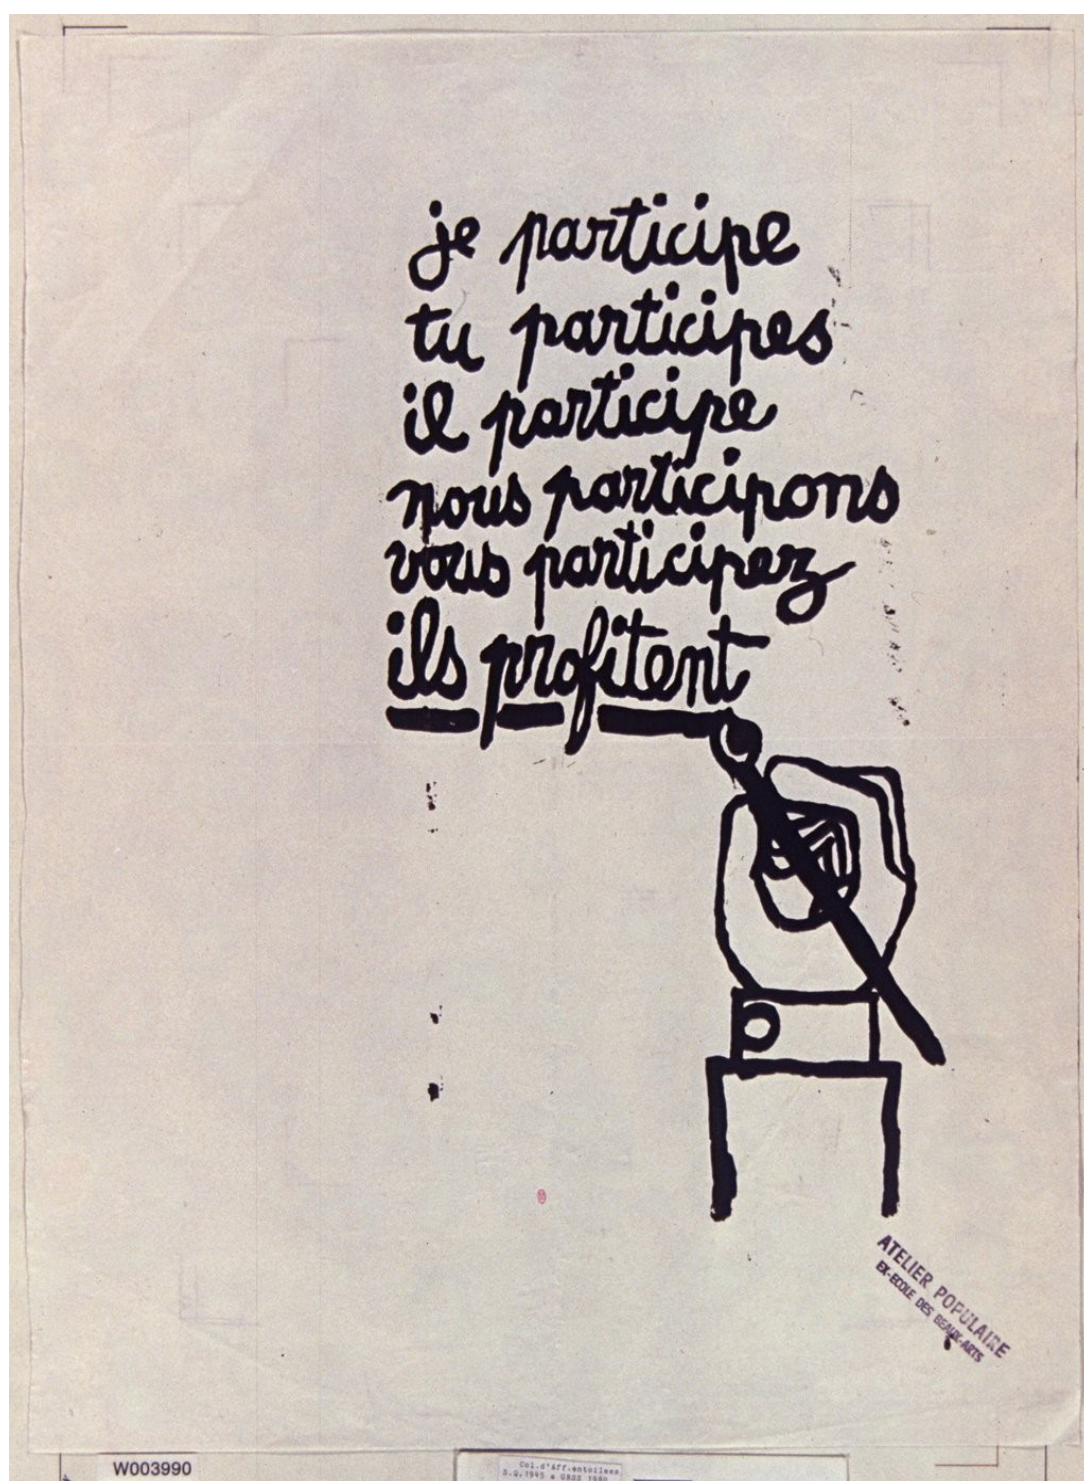 je participe
tu participes
il participe
nous participons
vous participez
ils profitent
ATELIER POPULAIRE
EX-ECOLE DES BEAUX-ARTS
W003990
Col.d'Aff.entoilées